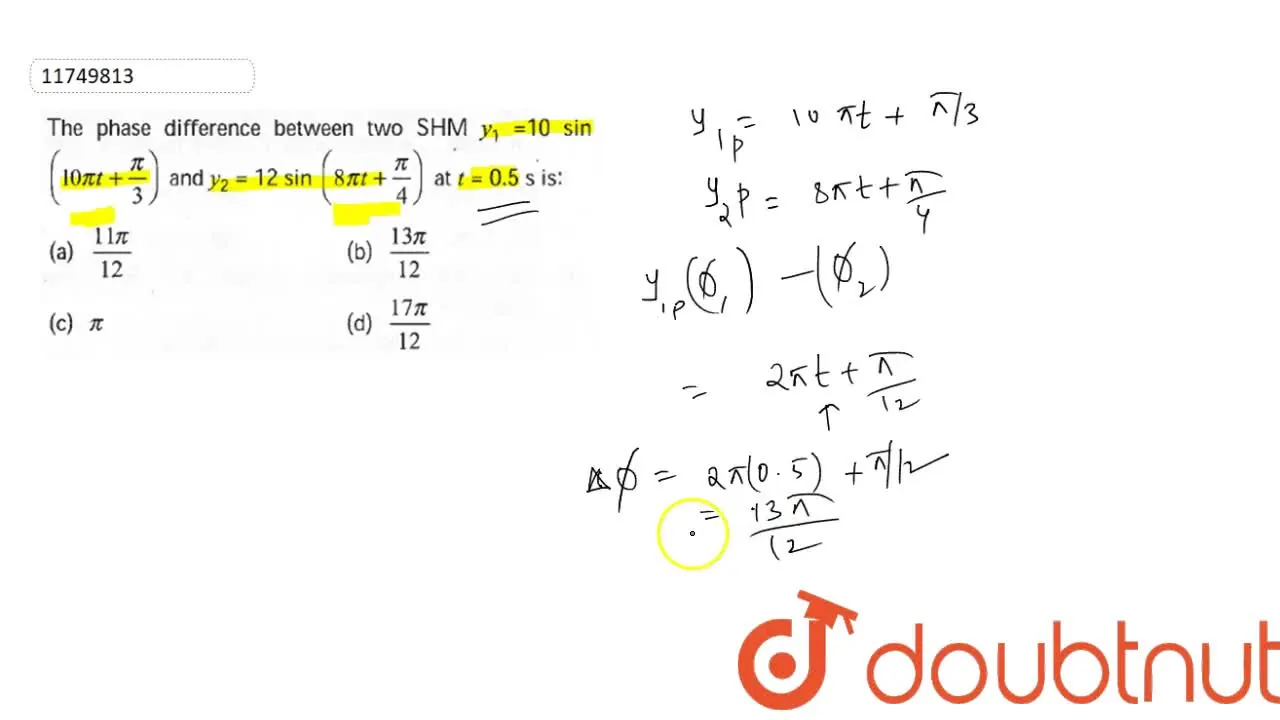 11749813
The phase difference between two SHM y₁ =10 sin
(10πt + π/3) and y₂ = 12 sin (8πt + π/4) at t = 0.5 s is:
(a) 11π/12 (b) 13π/12
(c) π (d) 17π/12
y₁p = 10 πt + π/3
y₂p = 8πt + π/4
y₁p(ϕ₁) − (ϕ₂)
= 2πt + π/12
↑
Δϕ = 2π(0.5) + π/12
= 13π/12
doubtnut